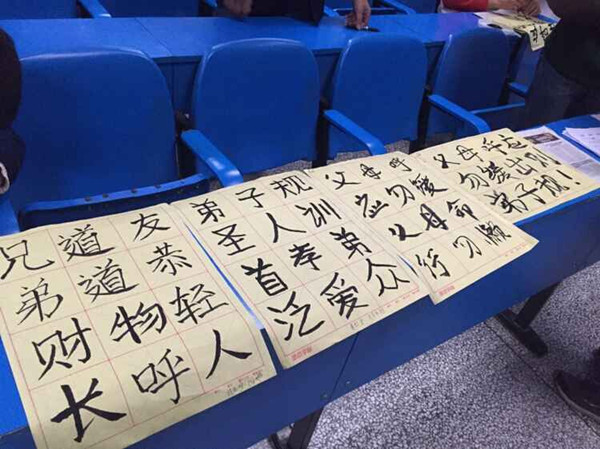 兄道友
弟道恭
财物轻
长呼人
弟子规
圣人训
首孝弟
泛爱众
父母呼
应勿缓
父母命
行勿懒
父母呼应
勿缓出则
弟子规！